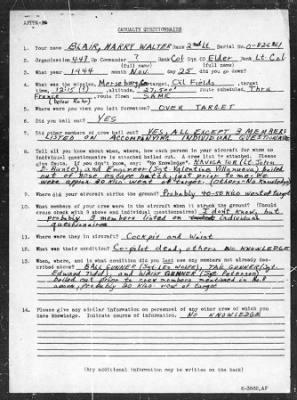 CASUALTY QUESTIONNAIRE
1. Your name BLAIR, HARRY WALTER Rank 2nd Lt Serial No.
2. Organization 447 Gp Commander ? Rank Col Sqn CO Elder Rank Lt. Col
(full name) (full name)
3. What year 1944 month Nov day 25 did you go down?
4. What was the mission, Merseburg Oil Fields, target
time, 12:15, altitude, 27,500' route scheduled, Thru
France, route flown SAME
5. Where were you when you left formation? OVER TARGET
6. Did you bail out? YES
7. Did other members of crew bail out? YES, ALL EXCEPT 3 MEMBERS
LISTED ON ACCOMPANYING INDIVIDUAL QUESTIONNAIRE
8. Tell all you know about when, where, how each person in your aircraft for whom no
individual questionnaire is attached bailed out. A crew list is attached. Please
give facts. If you don't know, say: "No Knowledge".
and Engineer (Sgt Valentin Villanueva) bailed
out of nose escape hatch just prior to me. We
were approx 20 Kilo west of target. (Others - No Knowledge)
9. Where did your aircraft strike the ground? Probably 40-50 Kilo west of target
10. What members of your crew were in the aircraft when it struck the ground? (Should
cross check with 8 above and individual questionnaires) I don't know, but
probably 3 members listed on individual
questionnaires
11. Where were they in aircraft? Cockpit and Waist
12. What was their condition? Co-pilot dead, others NO KNOWLEDGE
13. When, where, and in what condition did you last see any members not already des-
cribed above? BALL GUNNER (Sgt Les Wolfe), TAIL GUNNER (Sgt
Edward Todd), and WAIST GUNNER (Sgt Peterson)
bailed out prior to crew members mentioned in No. 8
above, probably 20 Kilo. west of target
14. Please give any similar information on personnel of any other crew of which you
have knowledge. Indicate source of information. NO KNOWLEDGE
(Any additional information may be written on the back)
6-3860,AF